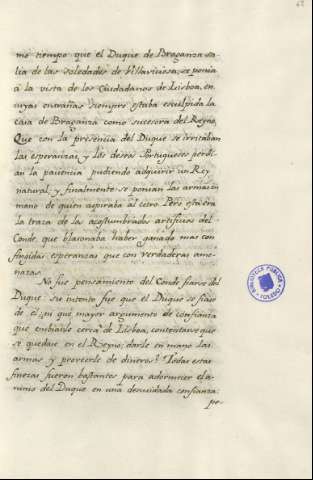 mo tiempo que el Duque de Braganza sa-
lia de las soledades de Villaviciosa, se ponia
à la vista de los Ciudadanos de Lisboa, en
cuyas entrañas siempre estaba esculpida la
casa de Braganza como sucesora del Reyno,
Que con la presencia del Duque se irritaban
las esperanzas, y los deseos Portugueses perdi-
an la paciencia pudiendo adquirir un Rey
natural, y finalmente se ponian las armas en
mano de quien aspiraba al cetro. Pero esta era
la traza de los acostumbrados artificios del
Conde, que blasonaba haber ganado mas con
fingidas esperanzas que con verdaderas ame-
nazas.
No fue pensamiento del Conde fiarse del
Duque: su intento fue que el Duque se fiase
de él; ¿y qué mayor argumento de confianza
que embiarle cerca de Lisboa, contentarse que
se quedase en el Reyno; darle en mano las
armas y proveerle de dineros? Todas estas
finezas fueron bastantes para adormecer el a-
nimo del Duque en una descuidada confianza:
pe-
BIBLIOTECA PUBLICA
TOLEDO